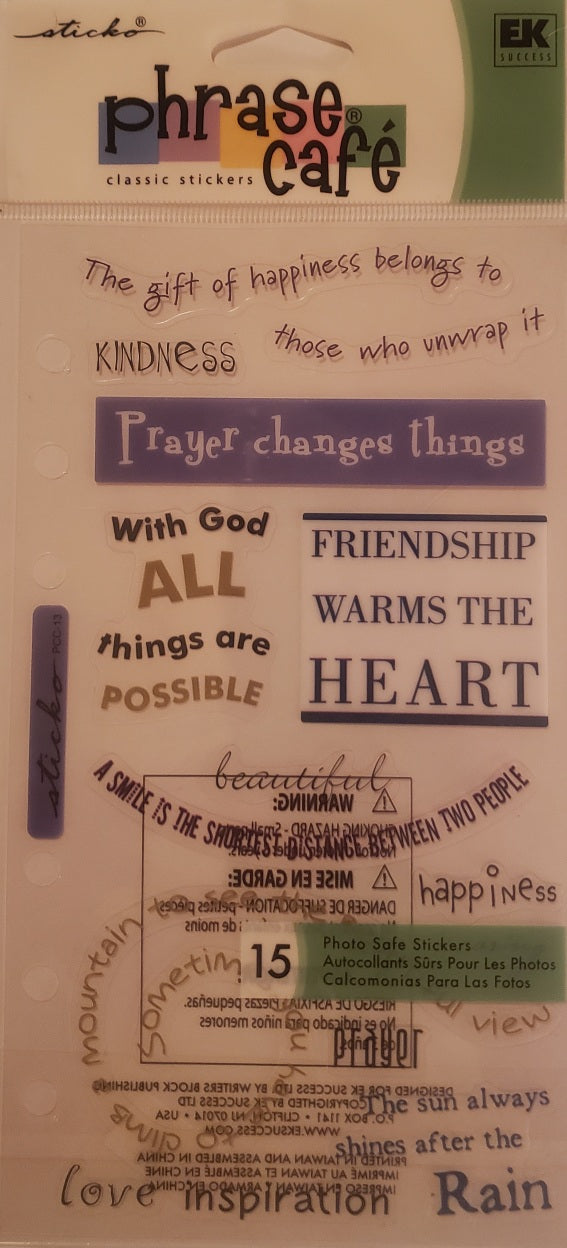 sticko®
EK
SUCCESS
phrase®
café
classic stickers
The gift of happiness belongs to
those who unwrap it
KINDNESS
Prayer changes things
With God
ALL
things are
POSSIBLE
FRIENDSHIP
WARMS THE
HEART
sticko PCC-13
beautiful
A SMILE IS THE SHORTEST DISTANCE BETWEEN TWO PEOPLE
WARNING:
CHOKING HAZARD - Small
MISE EN GARDE:
DANGER DE SUFFOCATION - petites pièces
happiness
15
Photo Safe Stickers
Autocollants Sûrs Pour Les Photos
Calcomanias Para Las Fotos
mountain to see
view
RIESGO DE ASFIXIA - Piezas pequeñas.
No es indicado para niños menores
prayer
DESIGNED FOR EK SUCCESS LTD. BY WRITERS BLOCK PUBLISHING
COPYRIGHTED BY EK SUCCESS LTD
P.O. BOX 1141 • CLIFTON, NJ 07014 • USA
WWW.EKSUCCESS.COM
PRINTED IN TAIWAN AND ASSEMBLED IN CHINA
IMPRIMÉ AU TAIWAN ET ASSEMBLÉ EN CHINE
The sun always
shines after the
Rain
love
inspiration